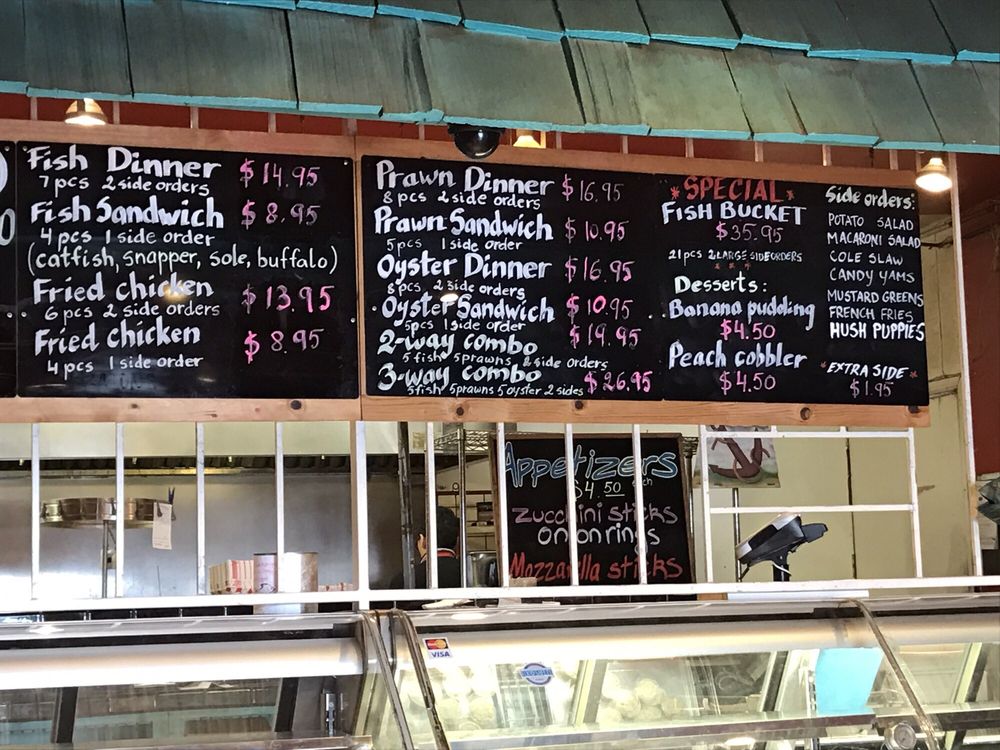 Fish Dinner $14.95
7 pcs 2 side orders
Fish Sandwich $8.95
4 pcs 1 side order
(catfish, snapper, sole, buffalo)
Fried chicken $13.95
6 pcs 2 side orders
Fried chicken $8.95
4 pcs 1 side order
Prawn Dinner $16.95
8 pcs 2 side orders
Prawn Sandwich $10.95
5pcs 1 side order
Oyster Dinner $16.95
8pcs 2 side orders
Oyster Sandwich $10.95
5pcs 1 side order
2-way combo $19.95
5 fish 5 prawns 2 side orders
3-way combo $26.95
5 fish 5 prawns 5 oyster 2 sides
*SPECIAL*
FISH BUCKET
$35.95
21 pcs 2 LARGE SIDE ORDERS
* * *
Desserts:
Banana pudding
$4.50
Peach cobbler
$4.50
Side orders:
POTATO SALAD
MACARONI SALAD
COLE SLAW
CANDY YAMS
MUSTARD GREENS
FRENCH FRIES
HUSH PUPPIES
*EXTRA SIDE*
$1.95
Appetizers
$4.50 each
zucchini sticks
onion rings
Mozzarella sticks
VISA